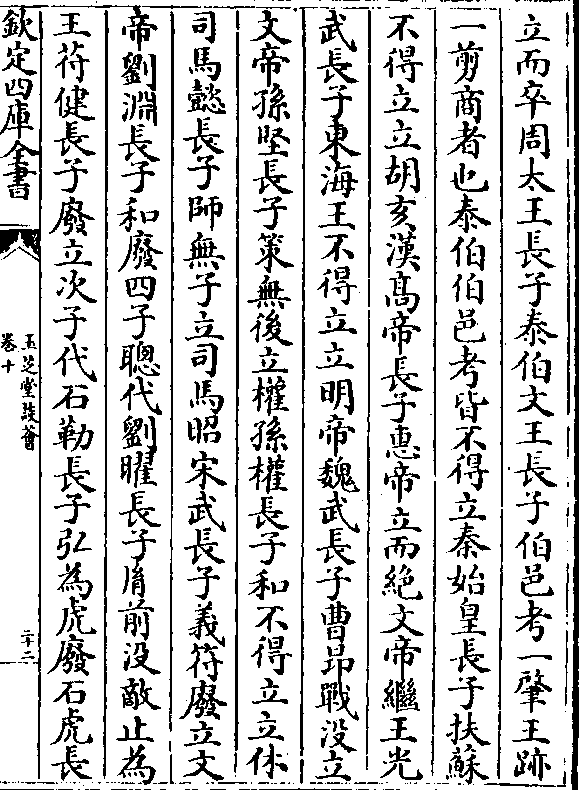 立而卒周太王長子泰伯文王長子伯邑考一肇王跡
一剪商者也泰伯伯邑考皆不得立秦始皇長子扶蘇
不得立立胡亥漢髙帝長子惠帝立而絶文帝繼王光
武長子東海王不得立立明帝魏武長子曹昂戰没立
文帝孫堅長子策無後立權孫權長子和不得立立休
司馬懿長子師無子立司馬昭宋武長子義符廢立文
帝劉淵長子和廢四子聰代劉曜長子胤前没敵止為
王苻健長子廢立次子代石勒長子弘為虎廢石虎長
欽定四庫全書
玉芝堂談薈
卷十
二十二